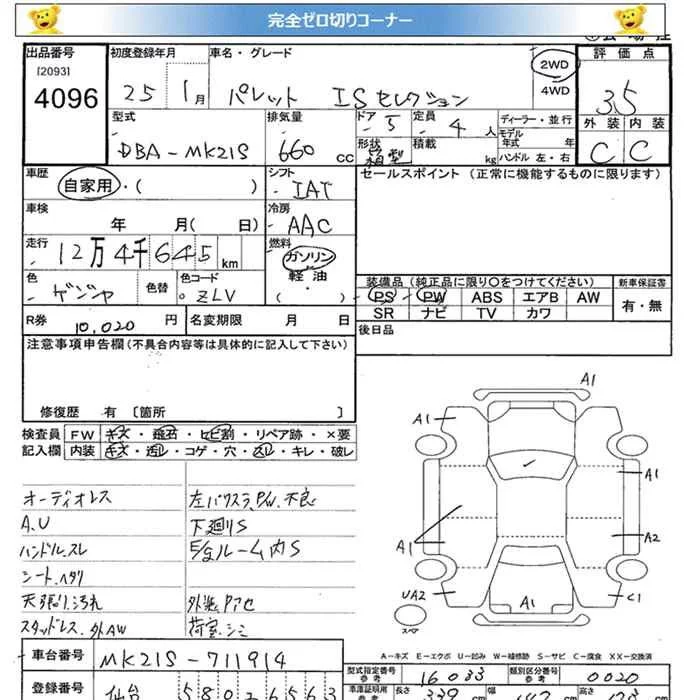 完全ゼロ切りコーナー
出品番号 初度登録年月 車名・グレード 評価点
[2093]
4096 25 1月 パレット ISセレクション 2WD 4WD 3.5
型式 排気量 ドア 5 定員 4人 ディーラー・並行 外装 内装
モデル年式 年
DBA-MK21S 660 CC 形状 箱型 積載 kg ハンドル 左・右 C C
車歴 シフト セールスポイント(正常に機能するものに限ります)
自家用・( ) IAT
車検 年 月( 日) 冷房 AAC
走行 12万4千645km 燃料 ガソリン 軽油 ( )
装備品(純正品に限り○をつけてください) 新車保証書
色 色替 色コード ZLV PS PW ABS エアB AW 有・無
SR ナビ TV カワ
R券 10,020円 名変期限 月 日 後日品
注意事項申告欄(不具合内容等は具体的に記入して下さい)
修復歴 有〔箇所 〕
検査員 FW キズ・飛石・ヒビ割・リペア跡・×要
記入欄 内装 キズ・汚レ・コゲ・穴・スレ・キレ・破レ
オーディオレス 左バクスラ,P/W.不良
A.U 下廻りS
ハンドル.スレ E/gルーム内S
シート.ヘタリ
天張り汚れ
スタッドレス.外AW 荷室.シミ
A1
A1
A1
A1
A2
UA2
C1
A1
スペア
A-キズ E-エクボ U-凹み W-補修跡 S-サビ C-腐食 XX-交換済
車台番号 MK21S-711914
型式指定番号 参考 16033 類別区分番号 参考 0020
登録番号 仙台 580
車庫証明用 参考 長さ 339 cm 幅 147 cm 高さ cm